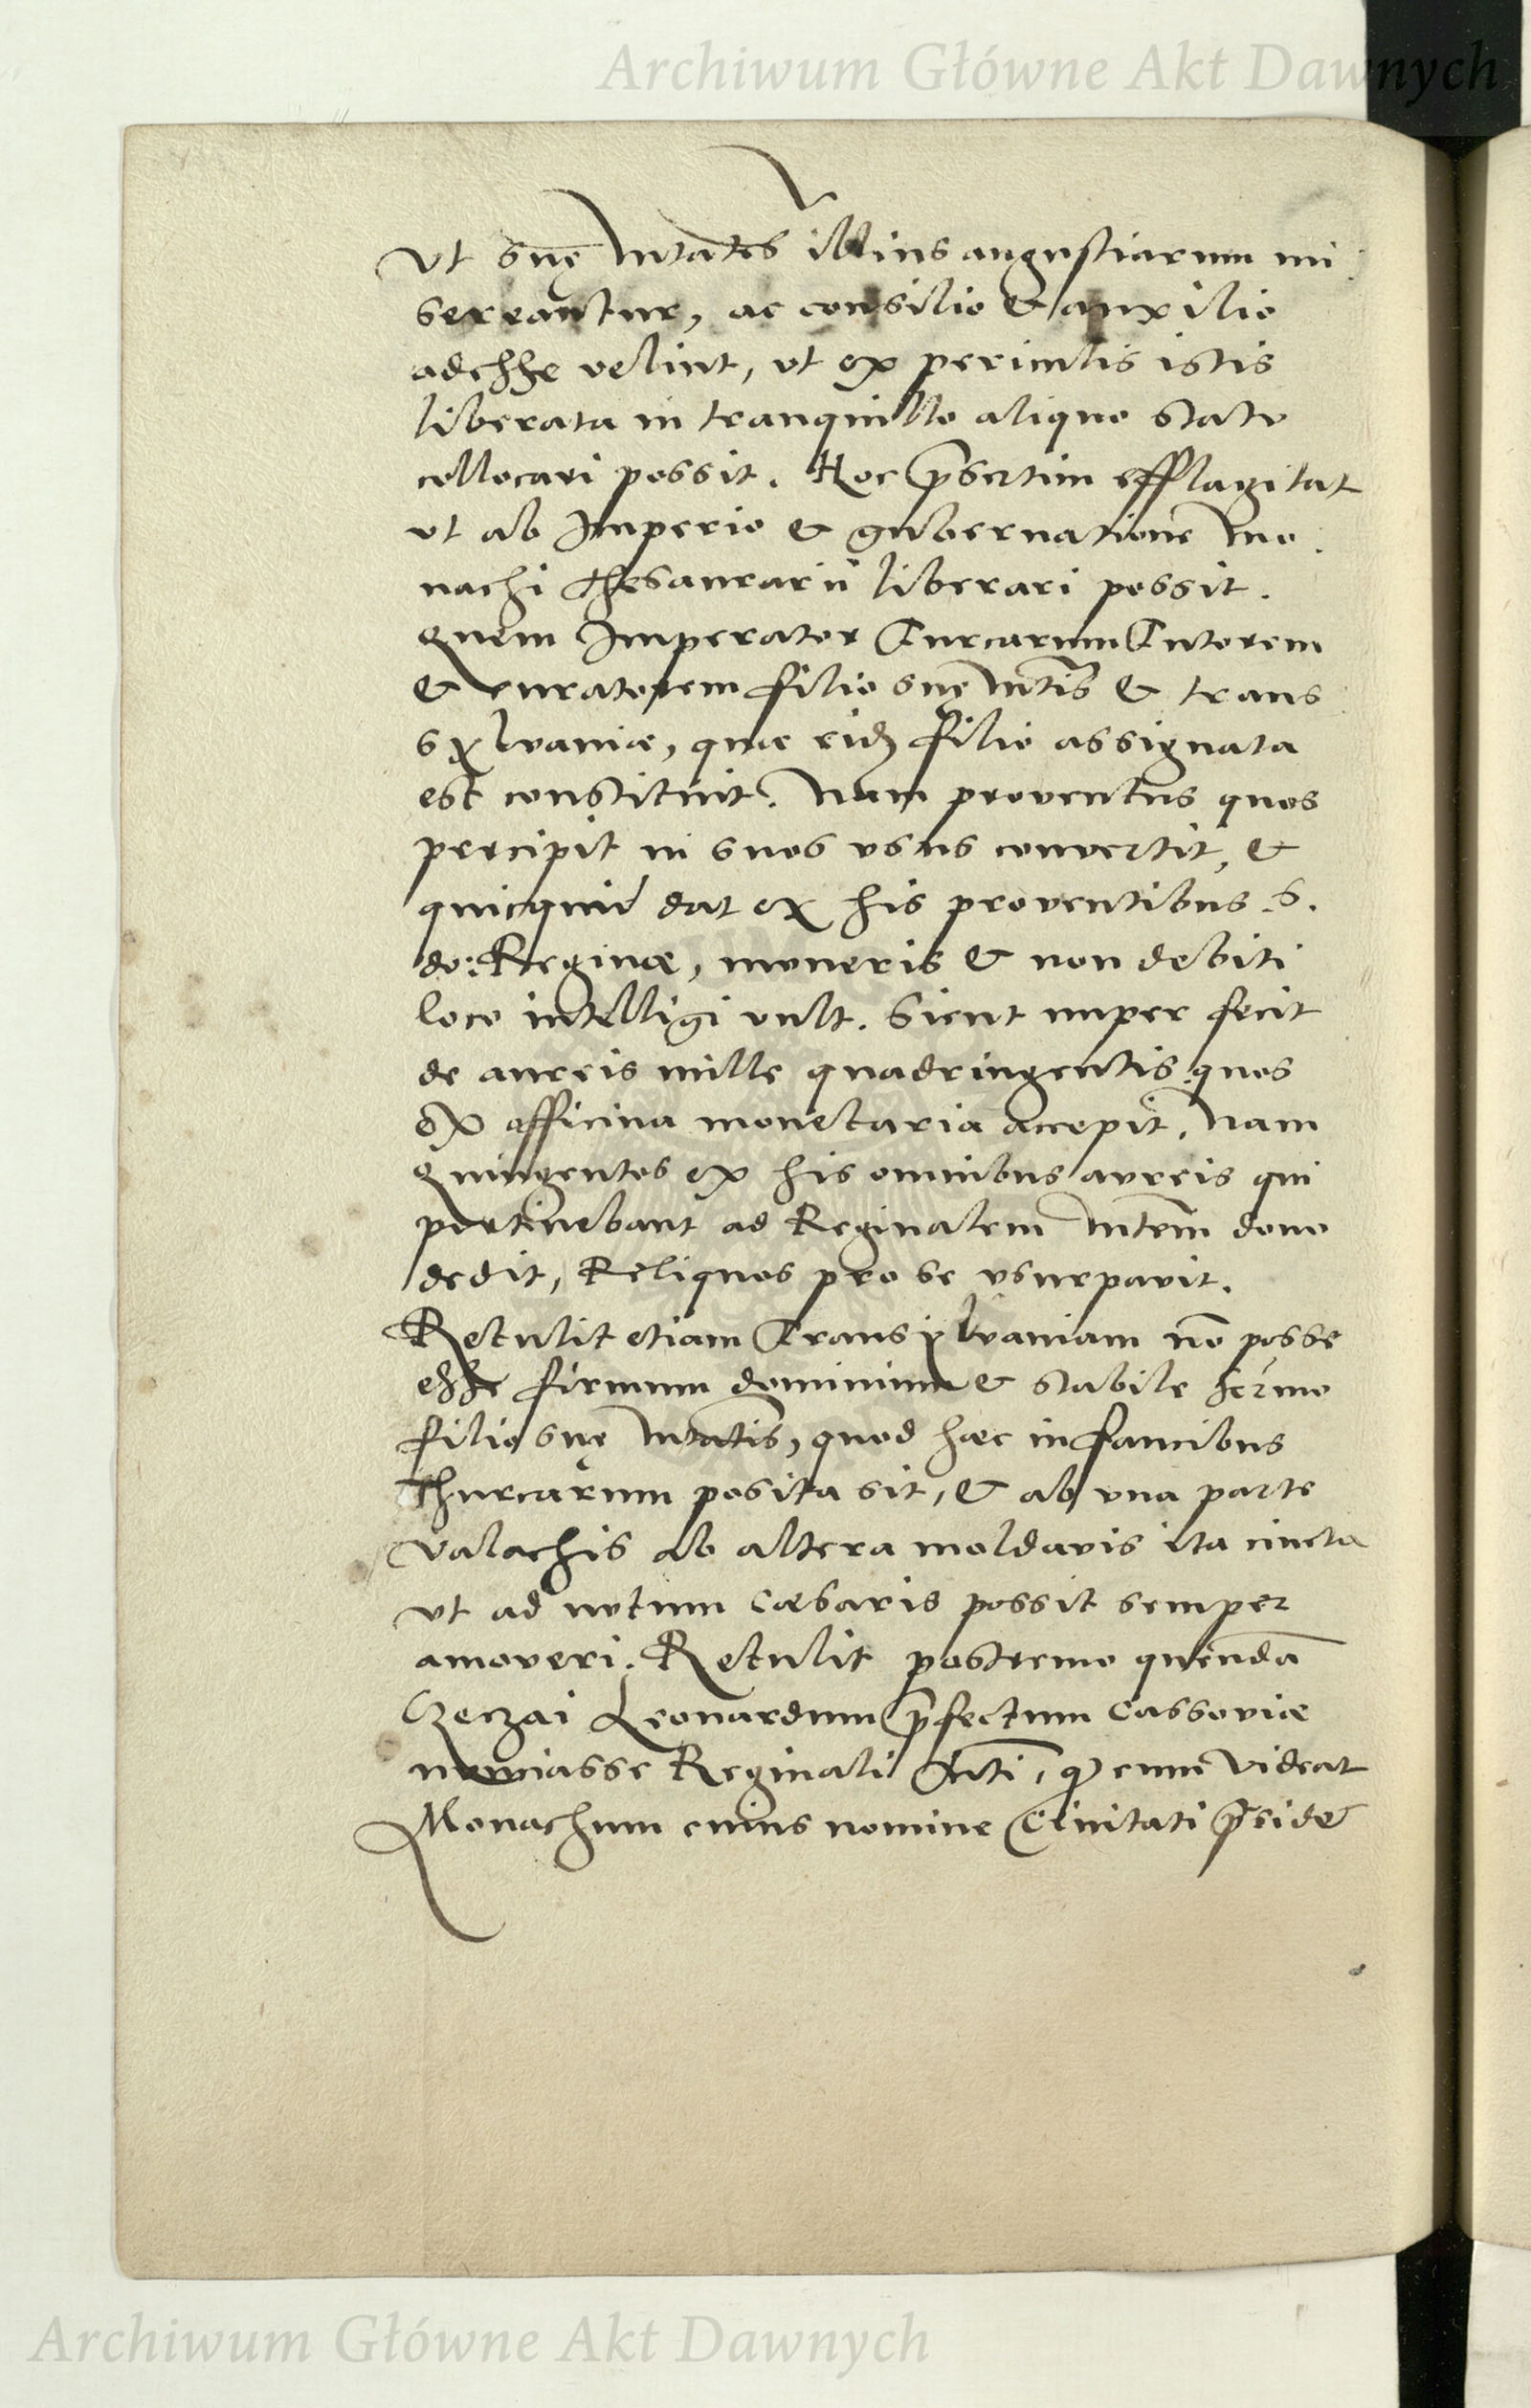 Archiwum Główne Akt Dawnych
Vt suę Mtates illius angustiarum mi
sereantur, ac consilio & auxilio
adesse velint, vt ex periculis istis
liberata in tranquillo aliquo statu
collocari possit. Hoc p̄sertim efflagitat
vt ab Imperio & gubernatione Mo
nachi Thesaurarii liberari possit.
quem Imperator Turcarum Tutorem
& curatorem filio suę Mtis & trans
sylvaniæ, quæ eidꝫ filio assignata
est constituit. Nam proventus quos
percipit in suos vsus convertit, &
quicquid dat ex his proventibus .S.
do: Reginæ, muneris & non debiti
loco intelligi vult. Sicut nuper fecit
de aureis mille quadringentis quos
ex officina monetaria accepit. Nam
quingentos ex his omnibus aureis qui
pertinebant ad Reginalem Mtem dono
dedit, Reliquos pro se vsurpavit.
Retulit etiam Transylvaniam nō posse
esse firmum dominium & stabile
filio suę Mtatis, quod hæc in faucibus
Thurcarum posita sit, & ab vna parte
Valachis ab altera moldavis ita cincta
vt ad nutum Cæsaris possit semper
amoveri. Retulit postremo quendā
Czeczai Leonardum p̄fectum Cassoviæ
nunciasse Reginali Mti, ꝙ cum videat
Monachum cuius nomine Civitati p̄sidet
Archiwum Główne Akt Dawnych